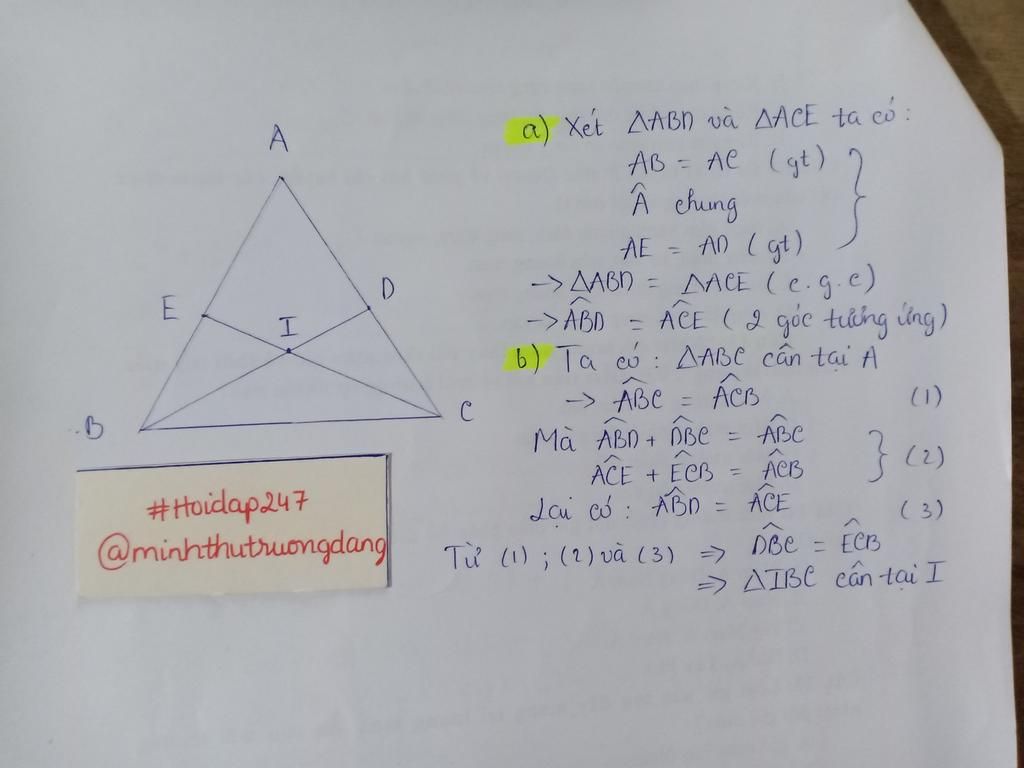 A
E
D
I
B
C
#Hoidap247
@minhthutruongdang
a) Xét △ABD và △ACE ta có:
AB = AC (gt)
Â chung
AE = AD (gt)
→ △ABD = △ACE (c.g.c)
→ ABD̂ = ACÊ (2 góc tương ứng)
b) Ta có: △ABC cân tại A
→ ABĈ = ACB̂ (1)
Mà ABD̂ + DBĈ = ABĈ
ACÊ + ECB̂ = ACB̂ (2)
Lại có: ABD̂ = ACÊ (3)
Từ (1); (2) và (3) ⇒ DBĈ = ECB̂
⇒ △IBC cân tại I